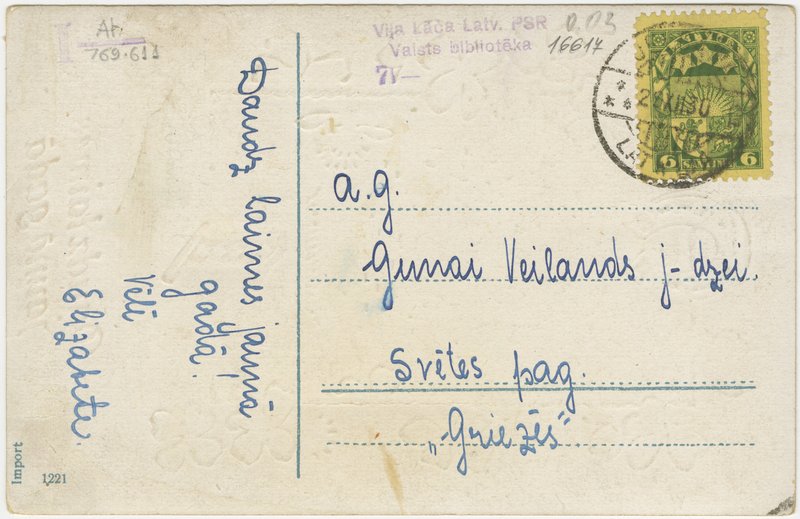 At.
769.611
Viļa Lāča Latv. PSR
Valsts bibliotēka
0.03
16617
71—
LATVIJA
6 6
Daudz laimes jaunā
gadā!
Vēl
Elizabete.
a.g.
Gunai Veilands j-dzei.
Svētes pag.
„Griezēs“.
Import
1221